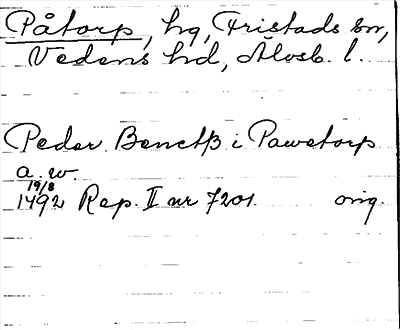 Påtorp, hg, Fristads sn,
Vedens hd, Älvsb. l.
Peder Benctß i Pawetorp
a. w.
19/8
1492 Rep. II nr 7201. orig.